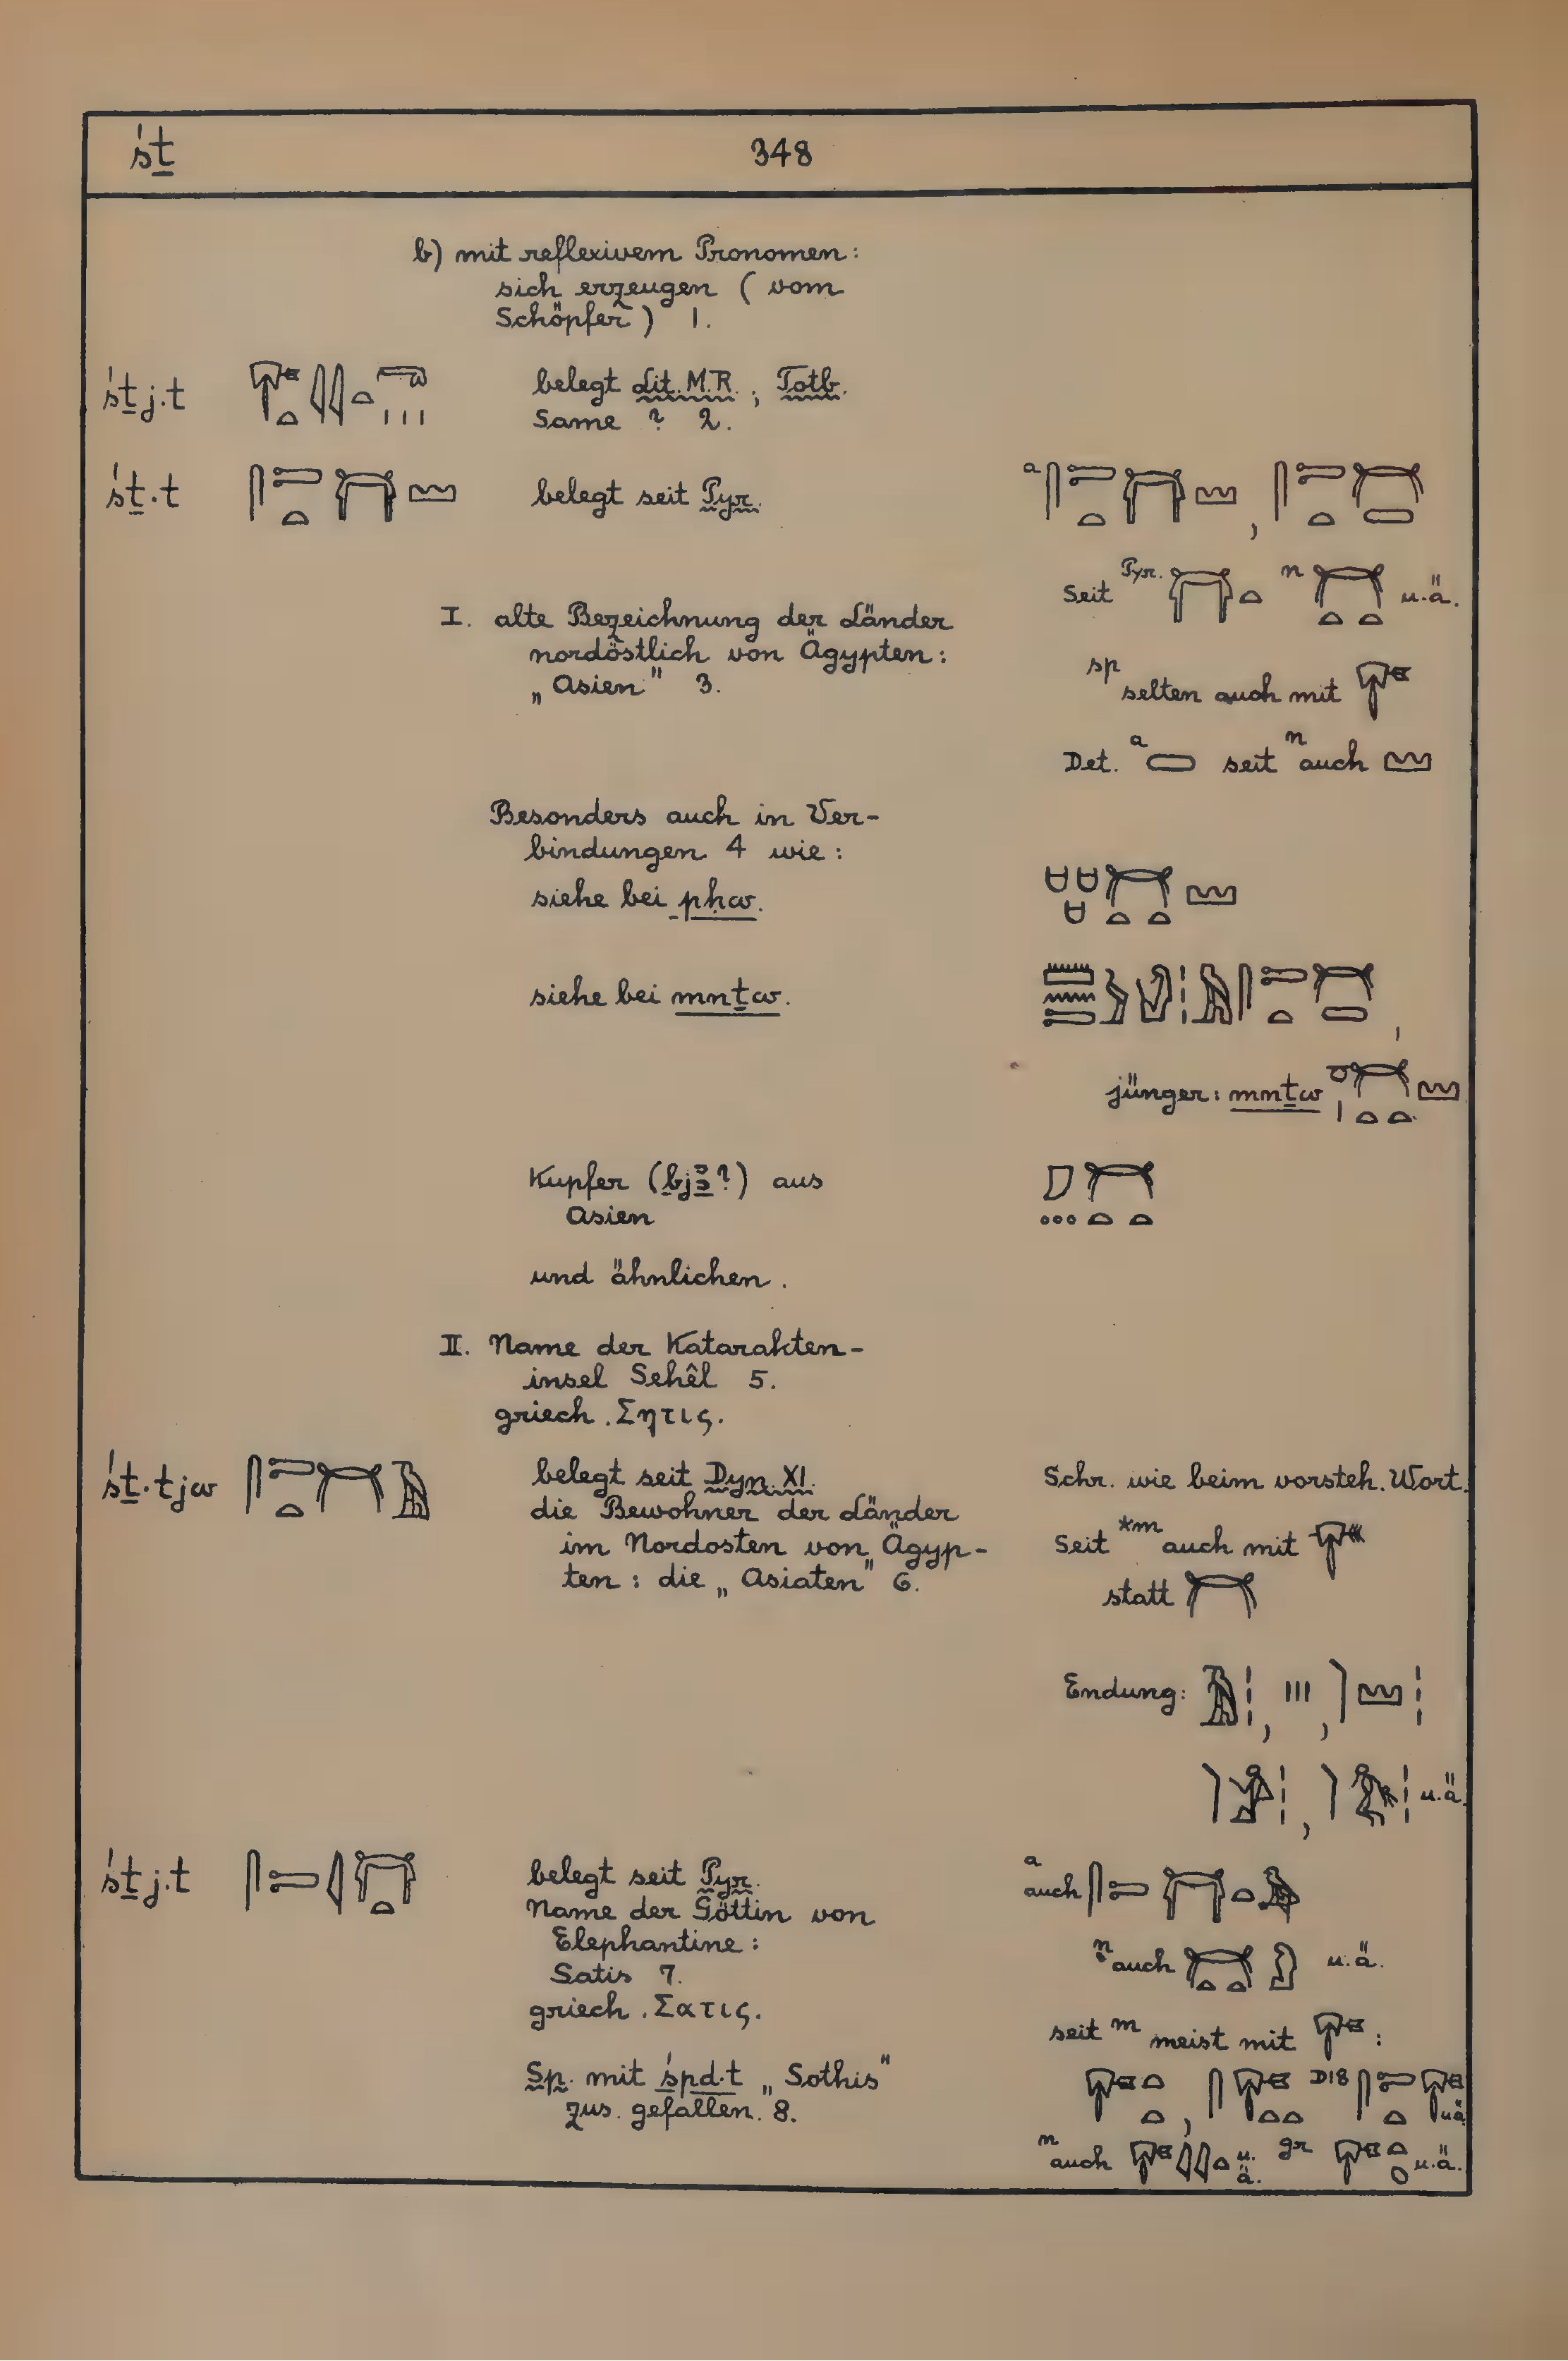 śṯ 348
b) mit reflexivem Pronomen:
sich erzeugen ( vom
Schöpfer ) 1.
śṯj.t belegt Lit. M.R. ; Totb.
Same ? 2.
śṯ.t belegt seit Pyr.
a ,
Seit Pyr. n u.ä.
I. alte Bezeichnung der Länder
nordöstlich von Ägypten:
„Asien" 3.
sp selten auch mit
Det. a seit n auch
Besonders auch in Ver-
bindungen 4 wie:
siehe bei pḥw.
siehe bei mnṯw.
,
jünger: mnṯw
Kupfer (bjꜣ?) aus
Asien
und ähnlichen.
II. Name der Katarakten-
insel Sehêl 5.
griech. Σητις.
śṯ.tjw belegt seit Dyn. XI.
die Bewohner der Länder
im Nordosten von Ägyp-
ten: die „Asiaten" 6.
Schr. wie beim vorsteh. Wort.
Seit *m auch mit
statt
Endung: , ,
, u.ä.
śṯj.t belegt seit Pyr.
Name der Göttin von
Elephantine:
Satis 7.
griech. Σατις.
Sp. mit śpd.t „Sothis"
zus. gefallen. 8.
a auch
n auch u.ä.
seit m meist mit :
, D18 u.ä.
n auch u.ä. gr u.ä.